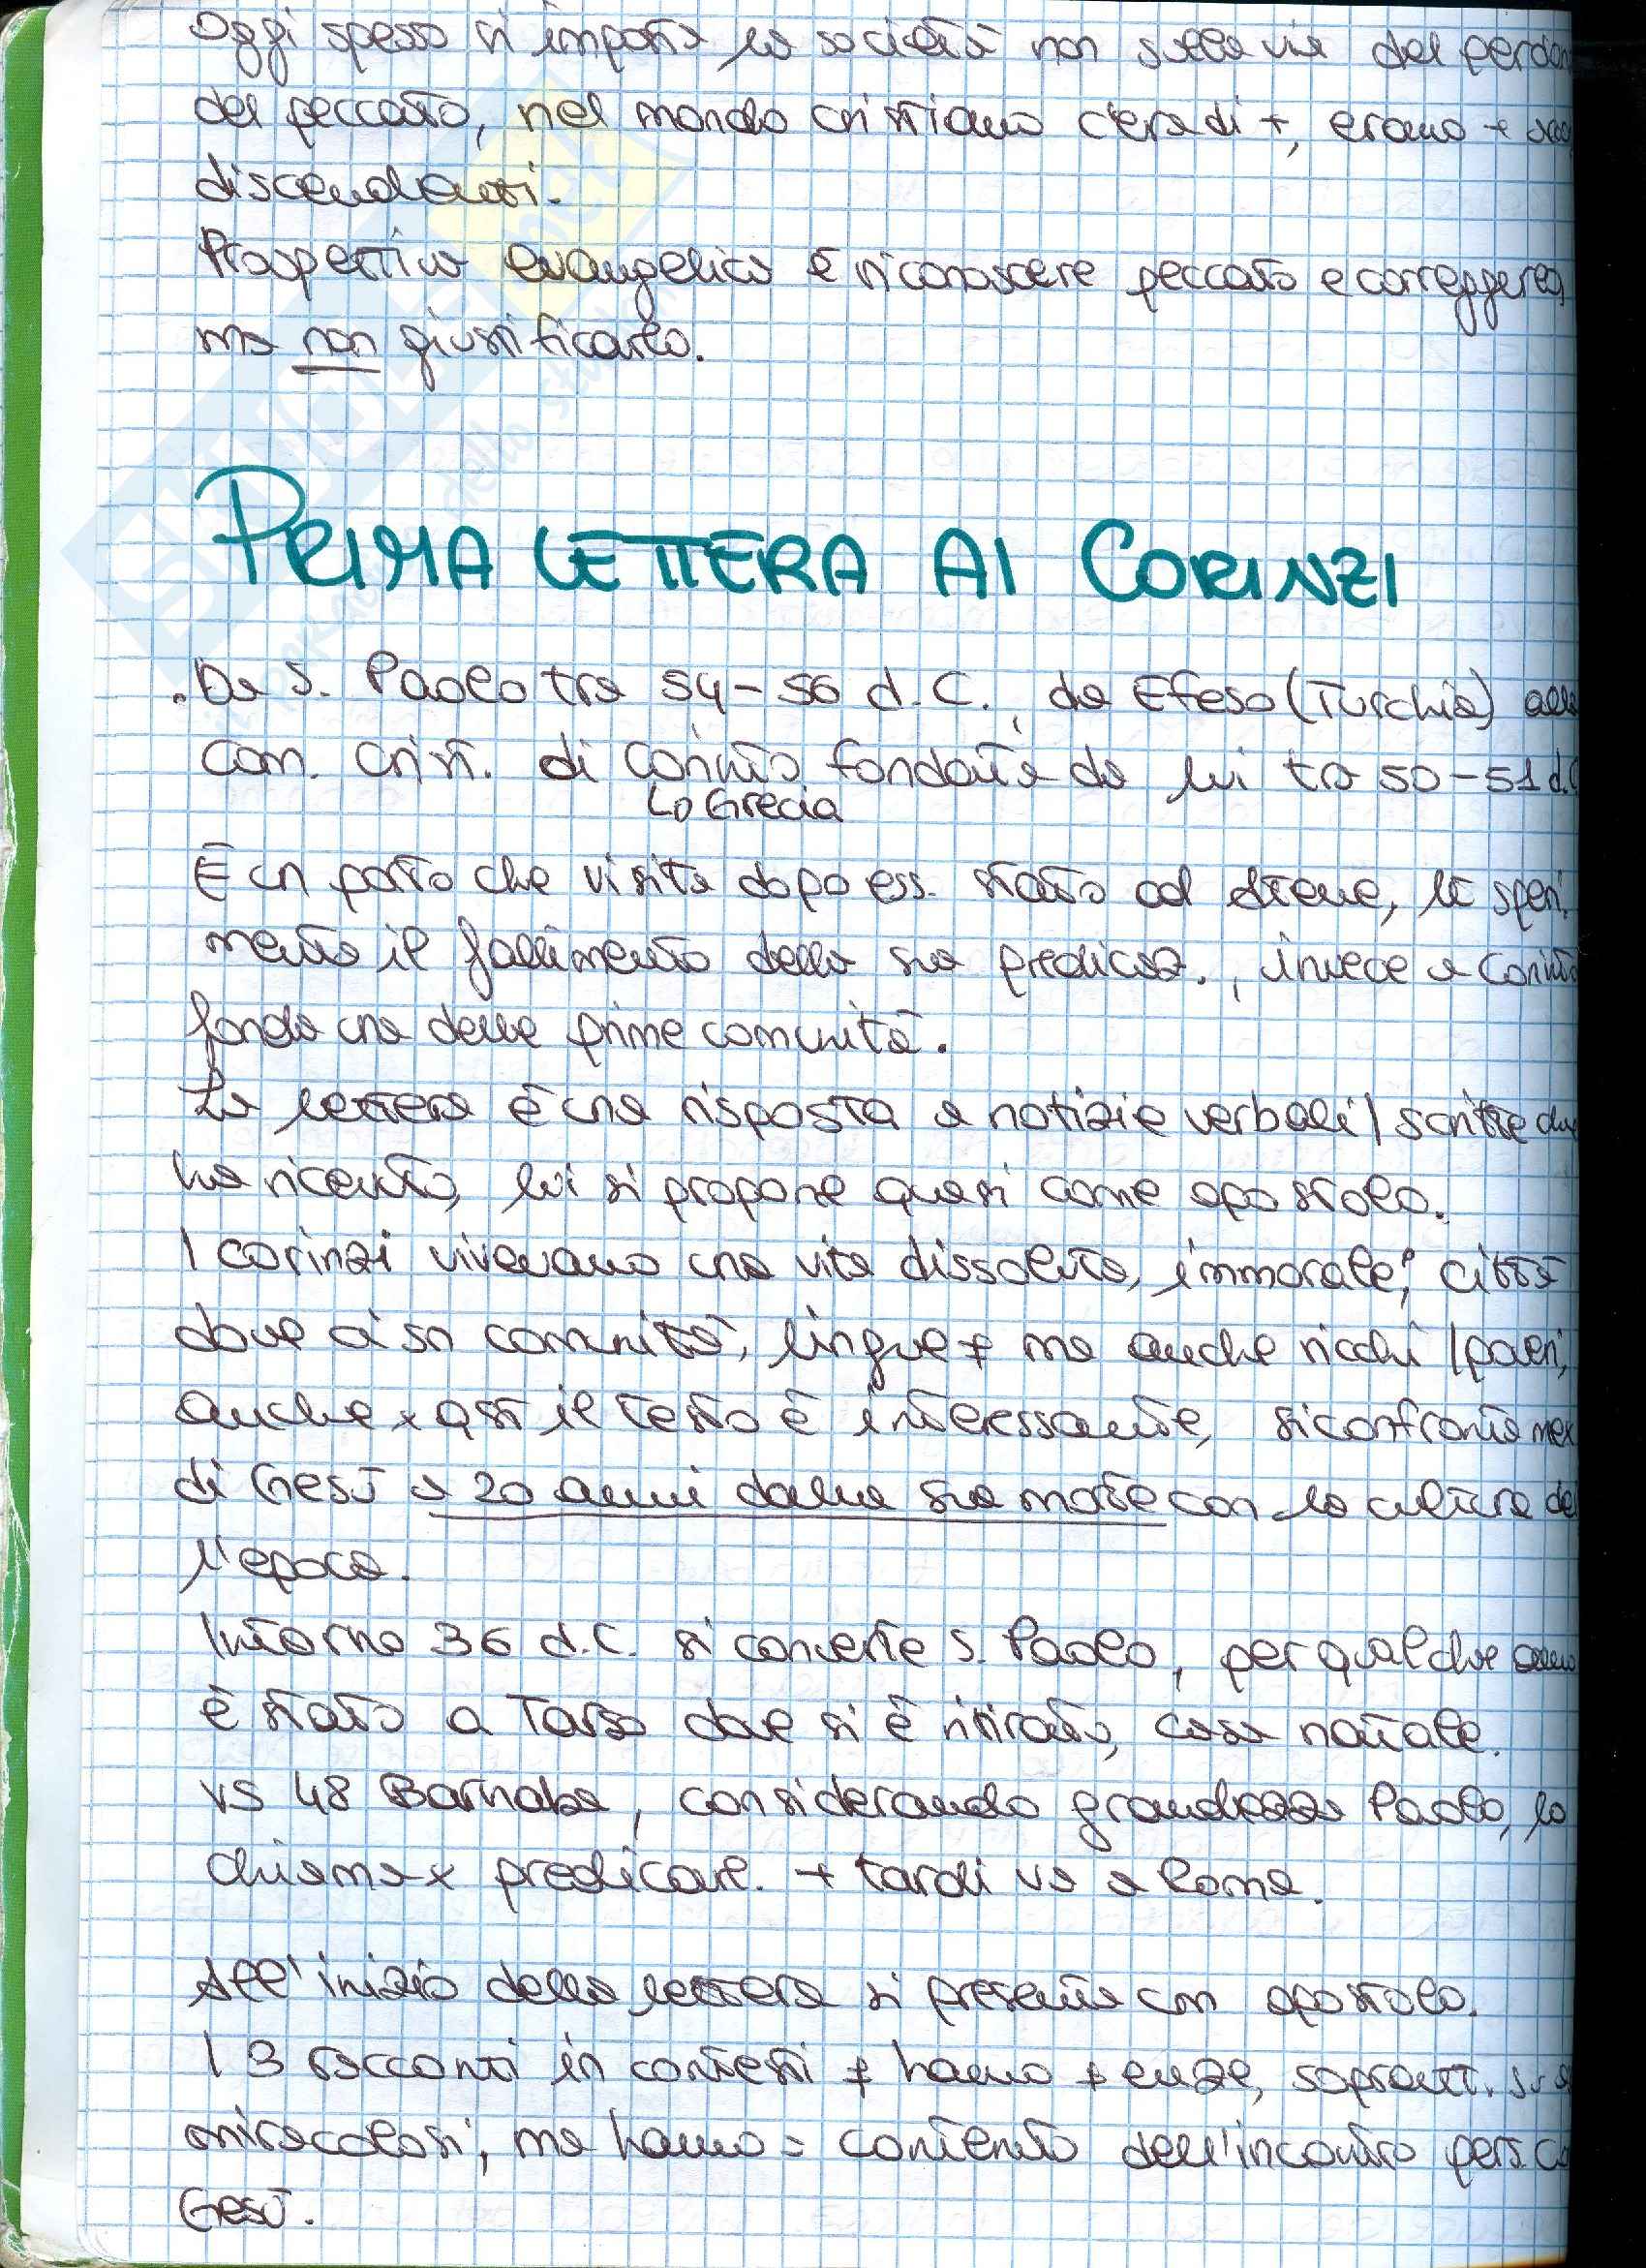 Oggi spesso si imposta la società non sulla via del perdon
del peccato, nel mondo cristiano c'era di +, erano +
discendenti.
Prospettiva evangelica è riconoscere peccato e correggerlo,
ma non giustificarlo.
PRIMA LETTERA AI CORINZI
. Da S. Paolo tra 54-56 d.C., da Efeso (Turchia) alla
com. crist. di Corinto fondata da lui tra 50-51 d.C
↳ Grecia
È un porto che visita dopo ess. stato ad Atene, lì speri
menta il fallimento della sua predicaz., invece a Corinto
fonda una delle prime comunità.
La lettera è una risposta a notizie verbali/scritte che
ha ricevuto, lui si propone quasi come apostolo.
I corinzi vivevano una vita dissoluta, immorale; città
dove ci sn comunità, lingue ≠ ma anche ricchi/poveri,
anche x qst il testo è interessante, si confronta mex
di Gesù a 20 anni dalla sua morte con la cultura del
l'epoca.
Intorno 36 d.C. si converte S. Paolo, per qualche anno
è stato a Tarso dove si è ritirato, casa natale.
vs 48 Barnaba, considerando grandezza Paolo, lo
chiama x predicare. + tardi va a Roma.
All'inizio della lettera si presenta com apostolo.
I 3 racconti in contesti ≠ hanno ≠enze, sopratt. su
miracolosi, ma hanno = contenuto dell'incontro pers. co
Gesù.